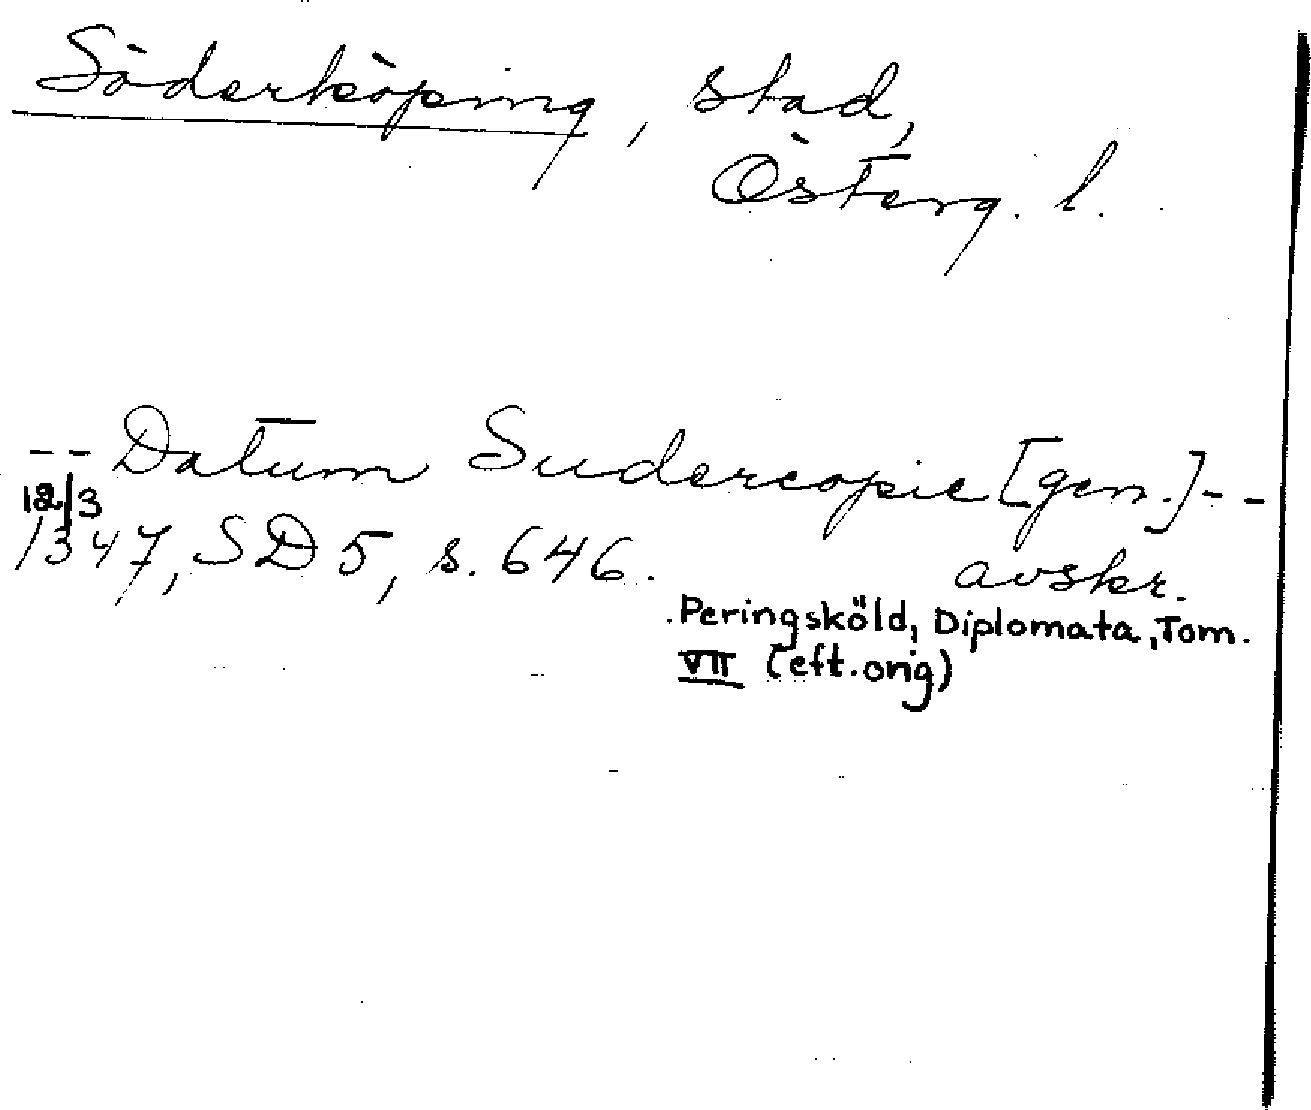 Söderköping, stad,
Österg. l.
-- Datum Sudercopie [gen.] --
12/3
1347, SD 5, s. 646. avskr.
Peringsköld, Diplomata, Tom.
VII (eft. orig)